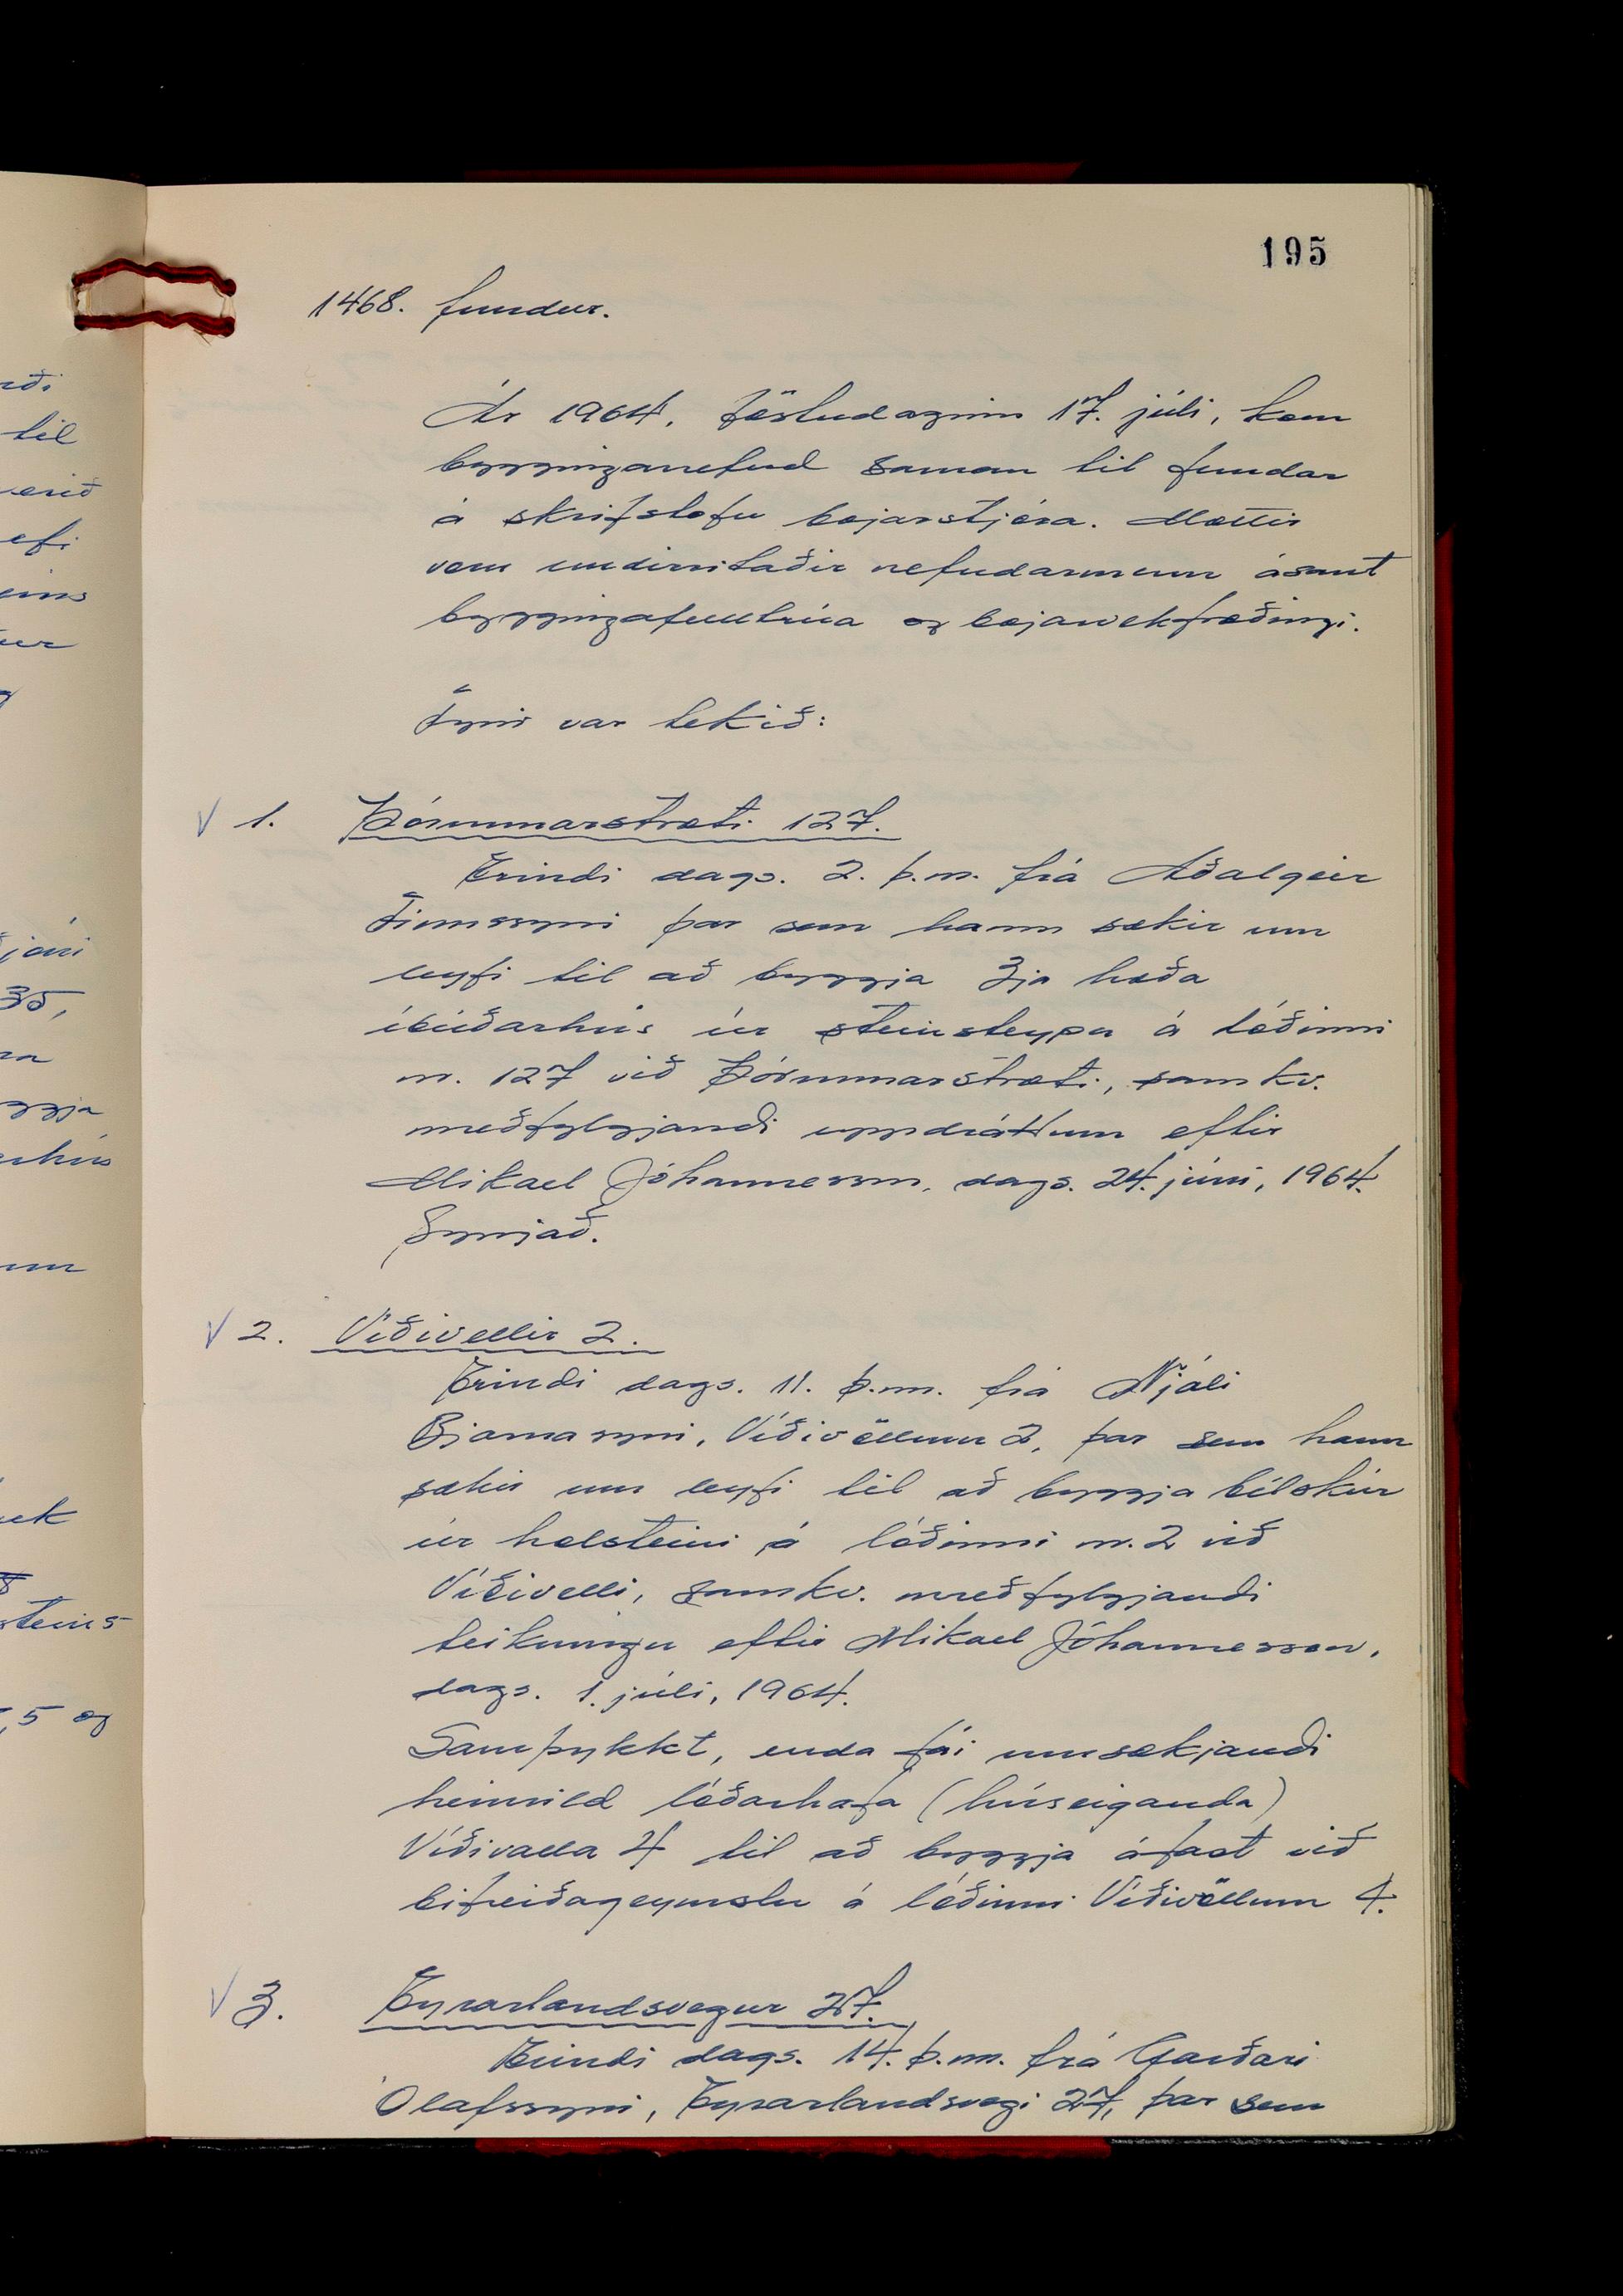 195
1468. fundur.
Ár 1964, föstudaginn 17. júlí, kom
bygginganefnd saman til fundar
á skrifstofu bæjarstjóra. Mættir
voru undirritaðir nefndarmenn ásamt
byggingafulltrúa og bæjarverkfræðingi.
Fyrir var tekið:
√ 1. Þórunnarstræti 127.
Erindi dags. 2. þ.m. frá Aðalgeir
Finnssyni þar sem hann sækir um
leyfi til að byggja 3ja hæða
íbúðarhús úr steinsteypu á lóðinni
nr. 127 við Þórunnarstræti, samkv.
meðfylgjandi uppdráttum eftir
Mikael Jóhannesson, dags. 24. júní, 1964.
Synjað.
√ 2. Víðivellir 2.
Erindi dags. 11. þ.m. frá Njáli
Bjarnasyni, Víðivöllum 2, þar sem hann
sækir um leyfi til að byggja bílskúr
úr holsteini á lóðinni nr. 2 við
Víðivelli, samkv. meðfylgjandi
teikningu eftir Mikael Jóhannesson,
dags. 1. júlí, 1964.
Samþykkt, enda fái umsækjandi
heimild lóðarhafa (húseiganda)
Víðivalla 4 til að byggja áfast við
bifreiðageymslu á lóðinni Víðivöllum 4.
√ 3. Eyrarlandsvegur 27.
Erindi dags. 14. þ.m. frá Garðari
Ólafssyni, Eyrarlandsvegi 27, þar sem
til
35,
ur
yggja
steins
,5 og